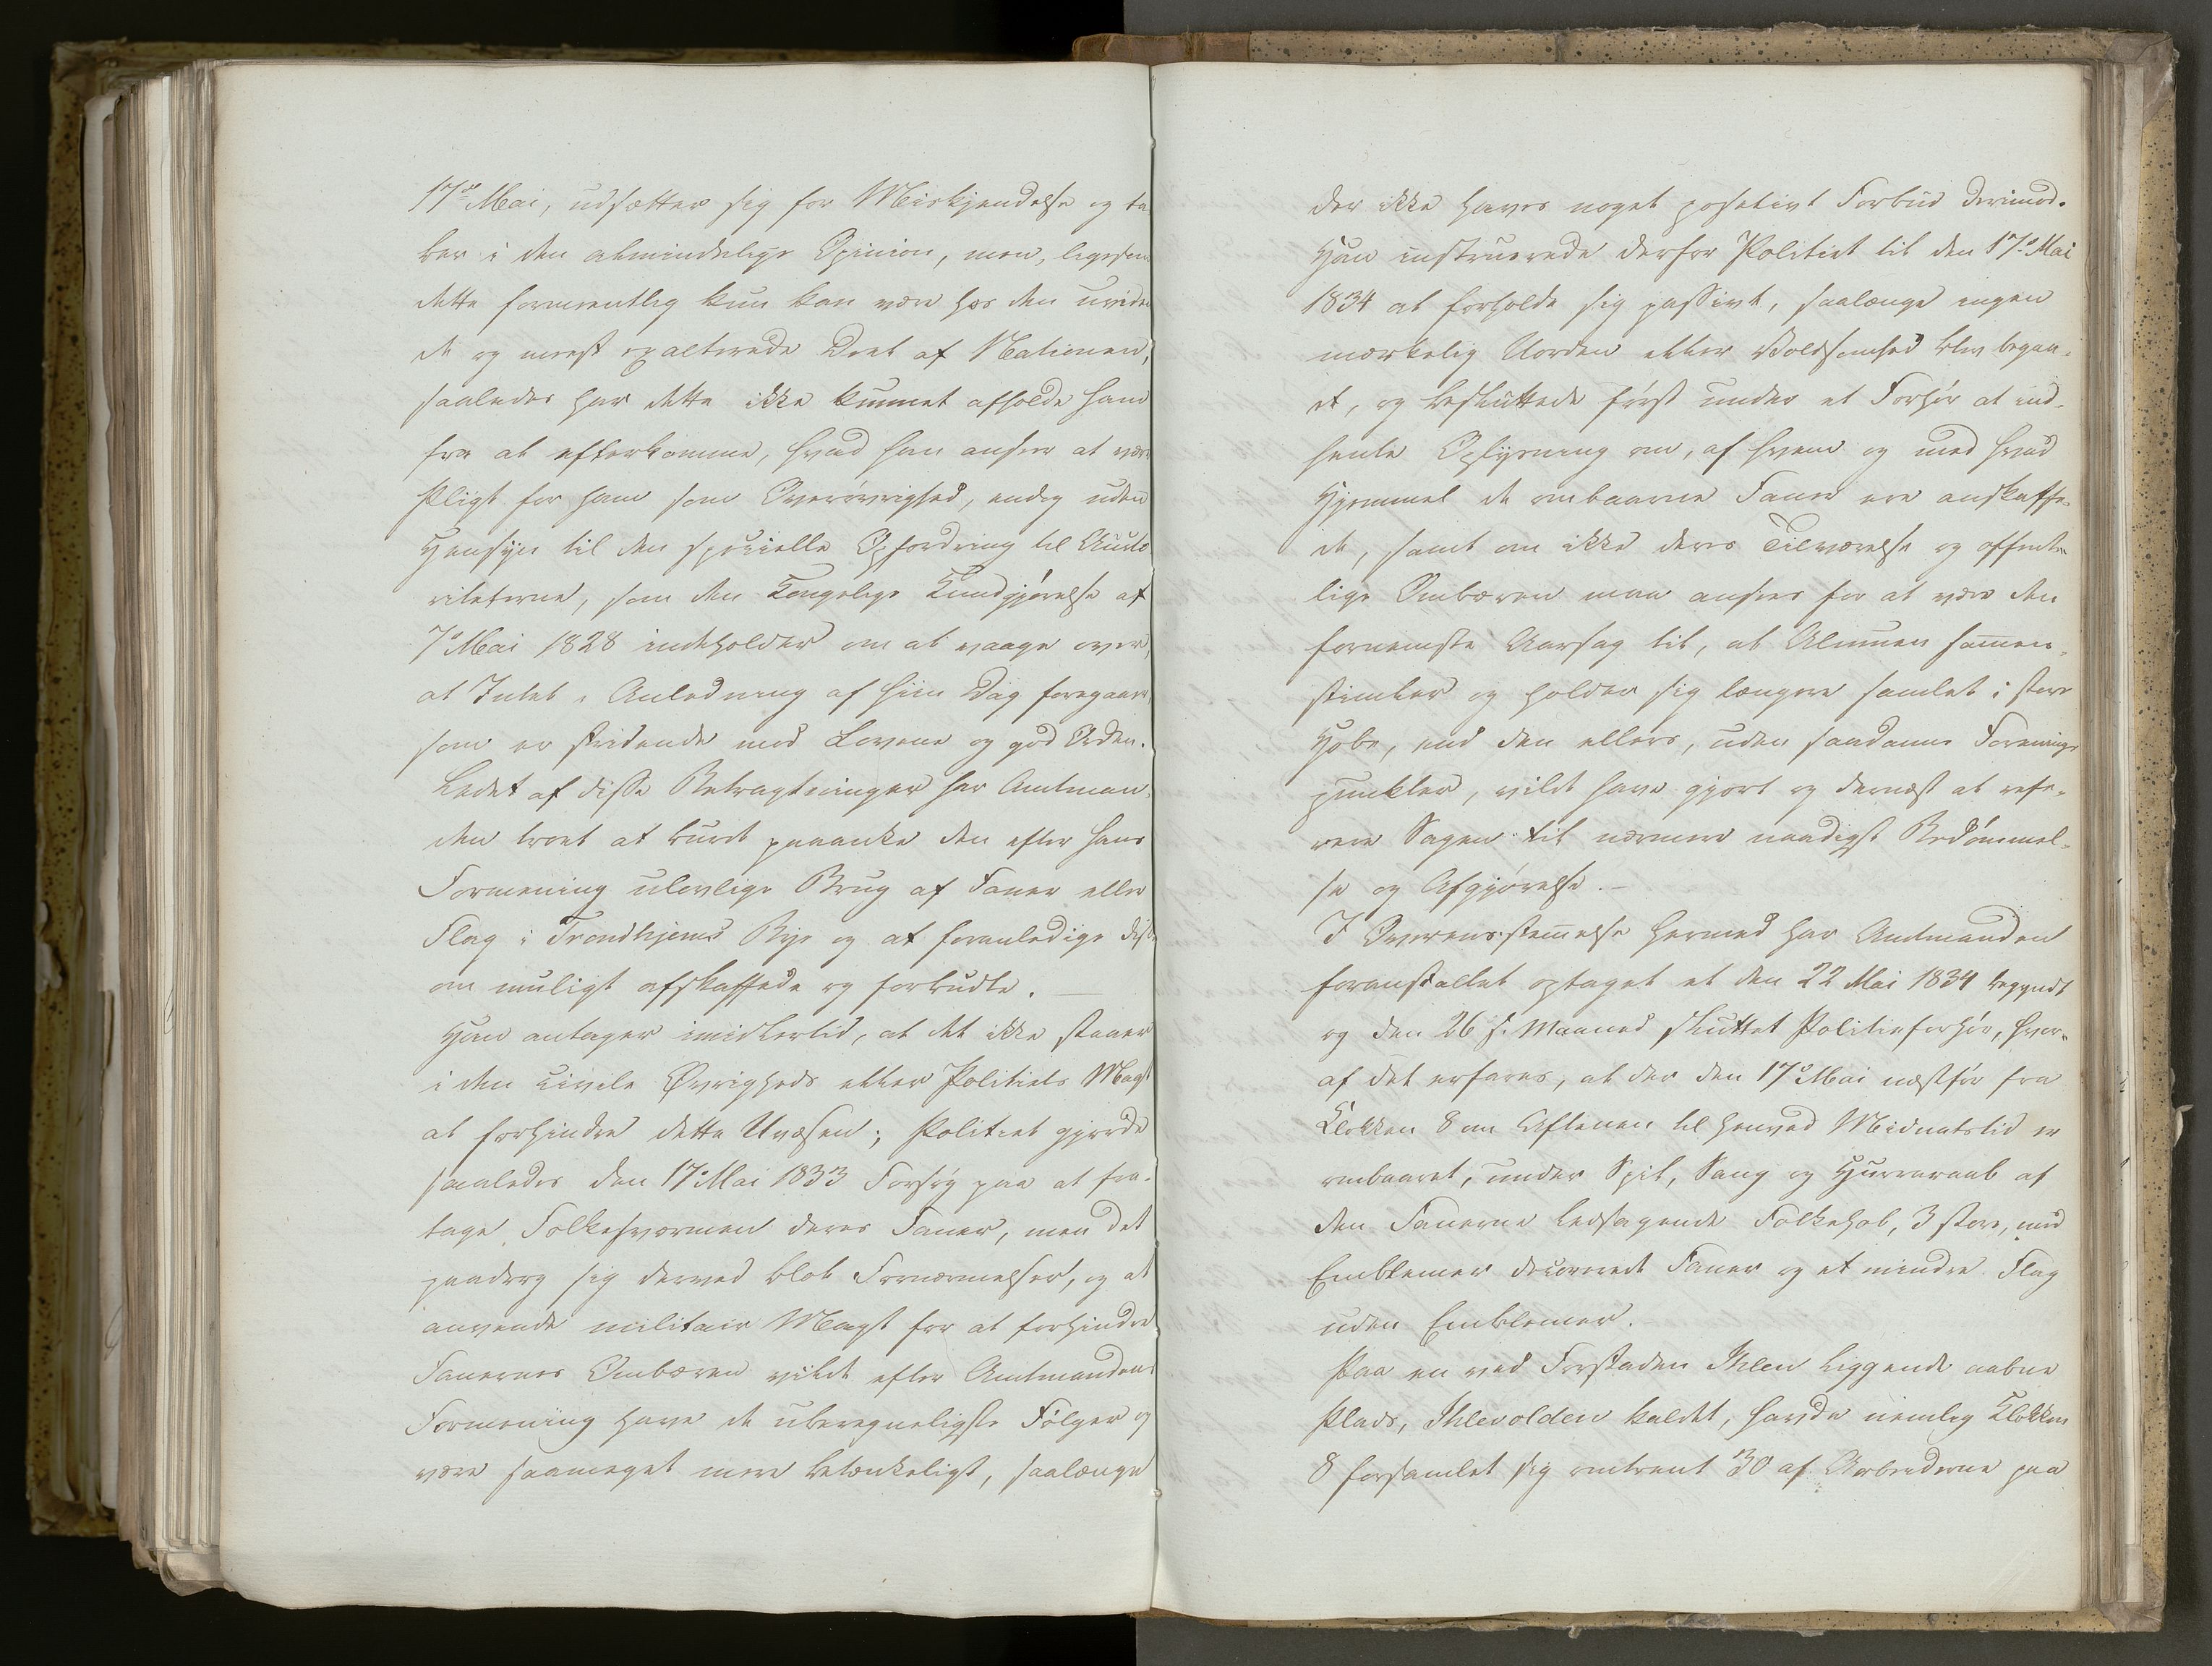 17de Mai, udsætter sig for Miskjendelse og ta-
ber i den almindelige Opinion, men, ligesom
dette formeentlig kun kan være hos den uviden
de og meest exalterede Deel af Nationen,
saaledes har dette ikke kunnet afholde ham
fra at efterkomme, hvad han anseer at være
Pligt for ham som Overøvrighed, endog uden
Hensyn til den specielle Opfordring til Aucto
riteterne, som den Kongelige Kundgjørelse af
7de Mai 1828 indeholder om at vaage over,
at Intet i Anledning af hiin Dag foregaaer,
som er stridende mod Lovene og god Orden.
Ledet af disse Betragtninger har Amtman-
den troet at burde paaanke den efter hans
Formening ulovlige Brug af Faner eller
Flag i Trondhjems Bye og at foranledige disse
om muligt afskaffede og forbudte. —
Han antager imidlertid, at det ikke staaer
i den civile Øvrigheds eller Politiets Magt
at forhindre dette Uvæsen; Politiet gjorde
saaledes den 17de Mai 1833 Forsøg paa at fra-
tage Folkesværmen deres Faner, men det
paadrog sig derved blot Fornærmelser, og at
anvende militair Magt for at forhindre
Fanernes Ombæren vilde efter Amtmandens
Formening have de uberegneligste Følger og
være saameget mere betænkeligt, saalænge
der ikke haves noget positivt Forbud derimod.
Han instruerede derfor Politiet til den 17de Mai
1834 at forholde sig passivt, saalænge ingen
mærkelig Uorden eller Voldsomhed blev begaa-
et, og besluttede først under et Forhør at ind-
hente Oplysning om, af hvem og med hvad
Hjemmel de ombaarne Faner ere anskaffe-
de, samt om ikke deres Tilværelse og offent-
lige Ombæren maa ansees for at være den
fornemste Aarsag til, at Almuen sammen-
stimler og holder sig længere samlet i store
Hobe, end den ellers, uden saadanne Forenings
punkter, vilde have gjort og dernæst at refe-
rere Sagen til nærmere naadigst Bedømmel-
se og Afgjørelse. —
I Overensstemmelse hermed har Amtmanden
foranstaltet optaget et den 22 Mai 1834 begyndt
og den 26 s. Maaned sluttet Politieforhør, hvor-
af det erfares, at der den 17de Mai næstfør fra
Klokken 8 om Aftenen til henved Midnatstid er
ombaaret, under Spil, Sang og Hurraraab af
den Fanerne ledsagende Folkehob, 3 store, med
Emblemer decorerede Faner og et mindre Flag
uden Emblemer.
Paa en ved Forstaden Ihlen liggende aaben
Plads, Ihlevolden kaldet, havde nemlig Klokken
8 forsamlet sig omtrent 30 af Arbeiderne paa